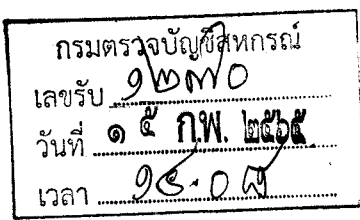 กรมตรวจบัญชีสหกรณ์
เลขรับ ๑๒๓๐
วันที่ ๑ ๕ ก.พ. ๒๕๖๕
เวลา ๑๕.๐๘